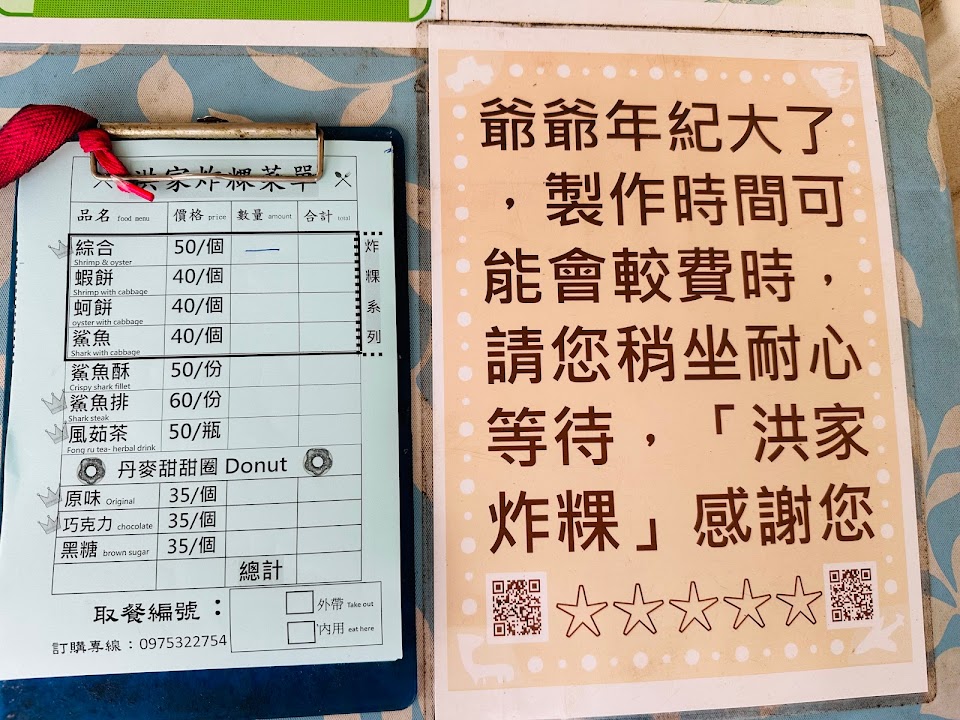 洪家炸粿菜單
品名 food menu 價格 price 數量 amount 合計 total
綜合 50/個 一
Shrimp & oyster
蝦餅 40/個
Shrimp with cabbage
蚵餅 40/個
oyster with cabbage
鯊魚 40/個
Shark with cabbage
炸粿系列
鯊魚酥 50/份
Crispy shark fillet
鯊魚排 60/份
Shark steak
風茹茶 50/瓶
Fong ru tea- herbal drink
丹麥甜甜圈 Donut
原味 Original 35/個
巧克力 chocolate 35/個
黑糖 brown sugar 35/個
總計
取餐編號：
外帶 Take out
內用 eat here
訂購專線：0975322754
爺爺年紀大了
，製作時間可
能會較費時，
請您稍坐耐心
等待，「洪家
炸粿」感謝您